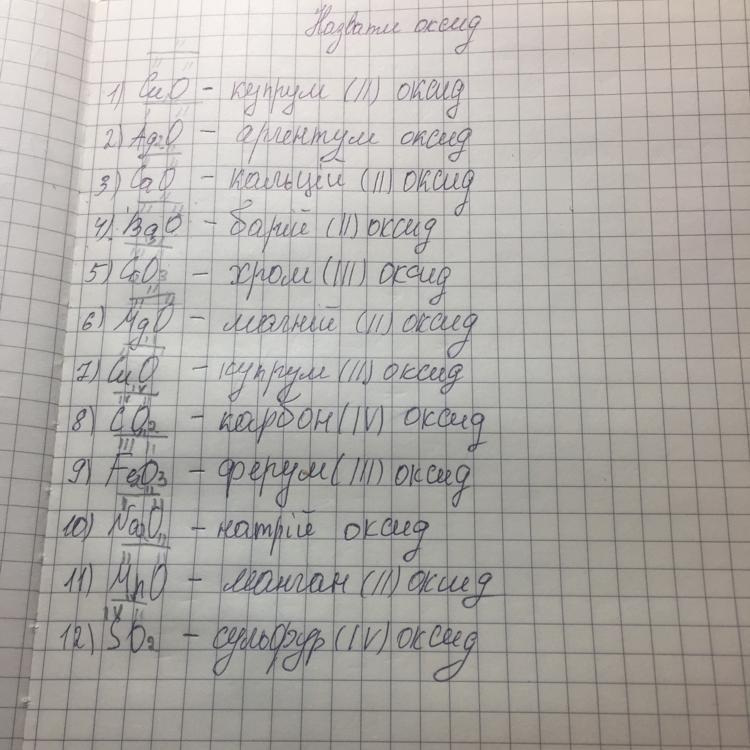 Назвати оксид
1) CuO - купрум (II) оксид
2) Ag2O - аргентум оксид
3) CaO - кальцій (II) оксид
4) BaO - барій (II) оксид
5) Cr2O3 - хром (III) оксид
6) MgO - магній (II) оксид
7) CuO - купрум (II) оксид
8) CO2 - карбон (IV) оксид
9) Fe2O3 - ферум (III) оксид
10) Na2O - натрій оксид
11) MnO - манган (II) оксид
12) SO2 - сульфур (IV) оксид